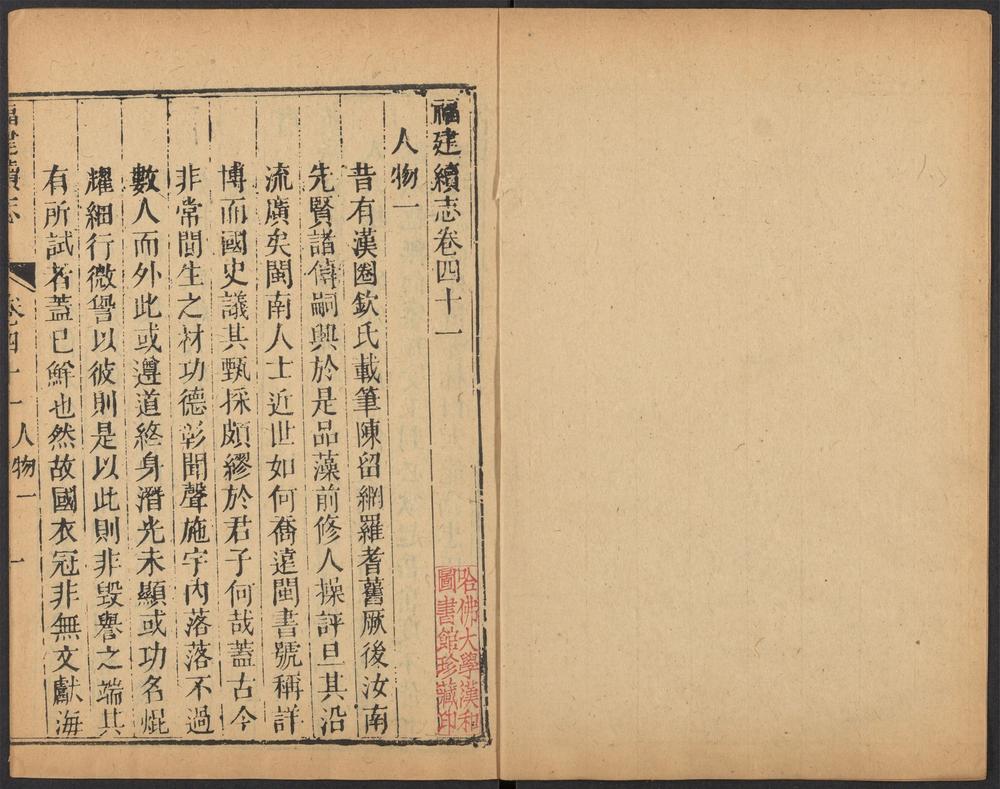 福建續志卷四十一
人物一
昔有漢圈欽氏載筆陳留網羅耆舊厥後汝南
先賢諸傳嗣興於是品藻前修人操評旦其沿
流廣矣閩南人士近世如何喬遠閩書號稱詳
博而國史議其甄採頗繆於君子何哉蓋古今
非常間生之材功德彰聞聲施宇内落落不過
數人而外此或遵道終身潛光未顯或功名焜
耀細行微譽以彼則是以此則非毀譽之端其
有所試者蓋已鮮也然故國衣冠非無文獻海
福建續志
卷四十一 人物一
一
哈佛大學漢和
圖書館珍藏印